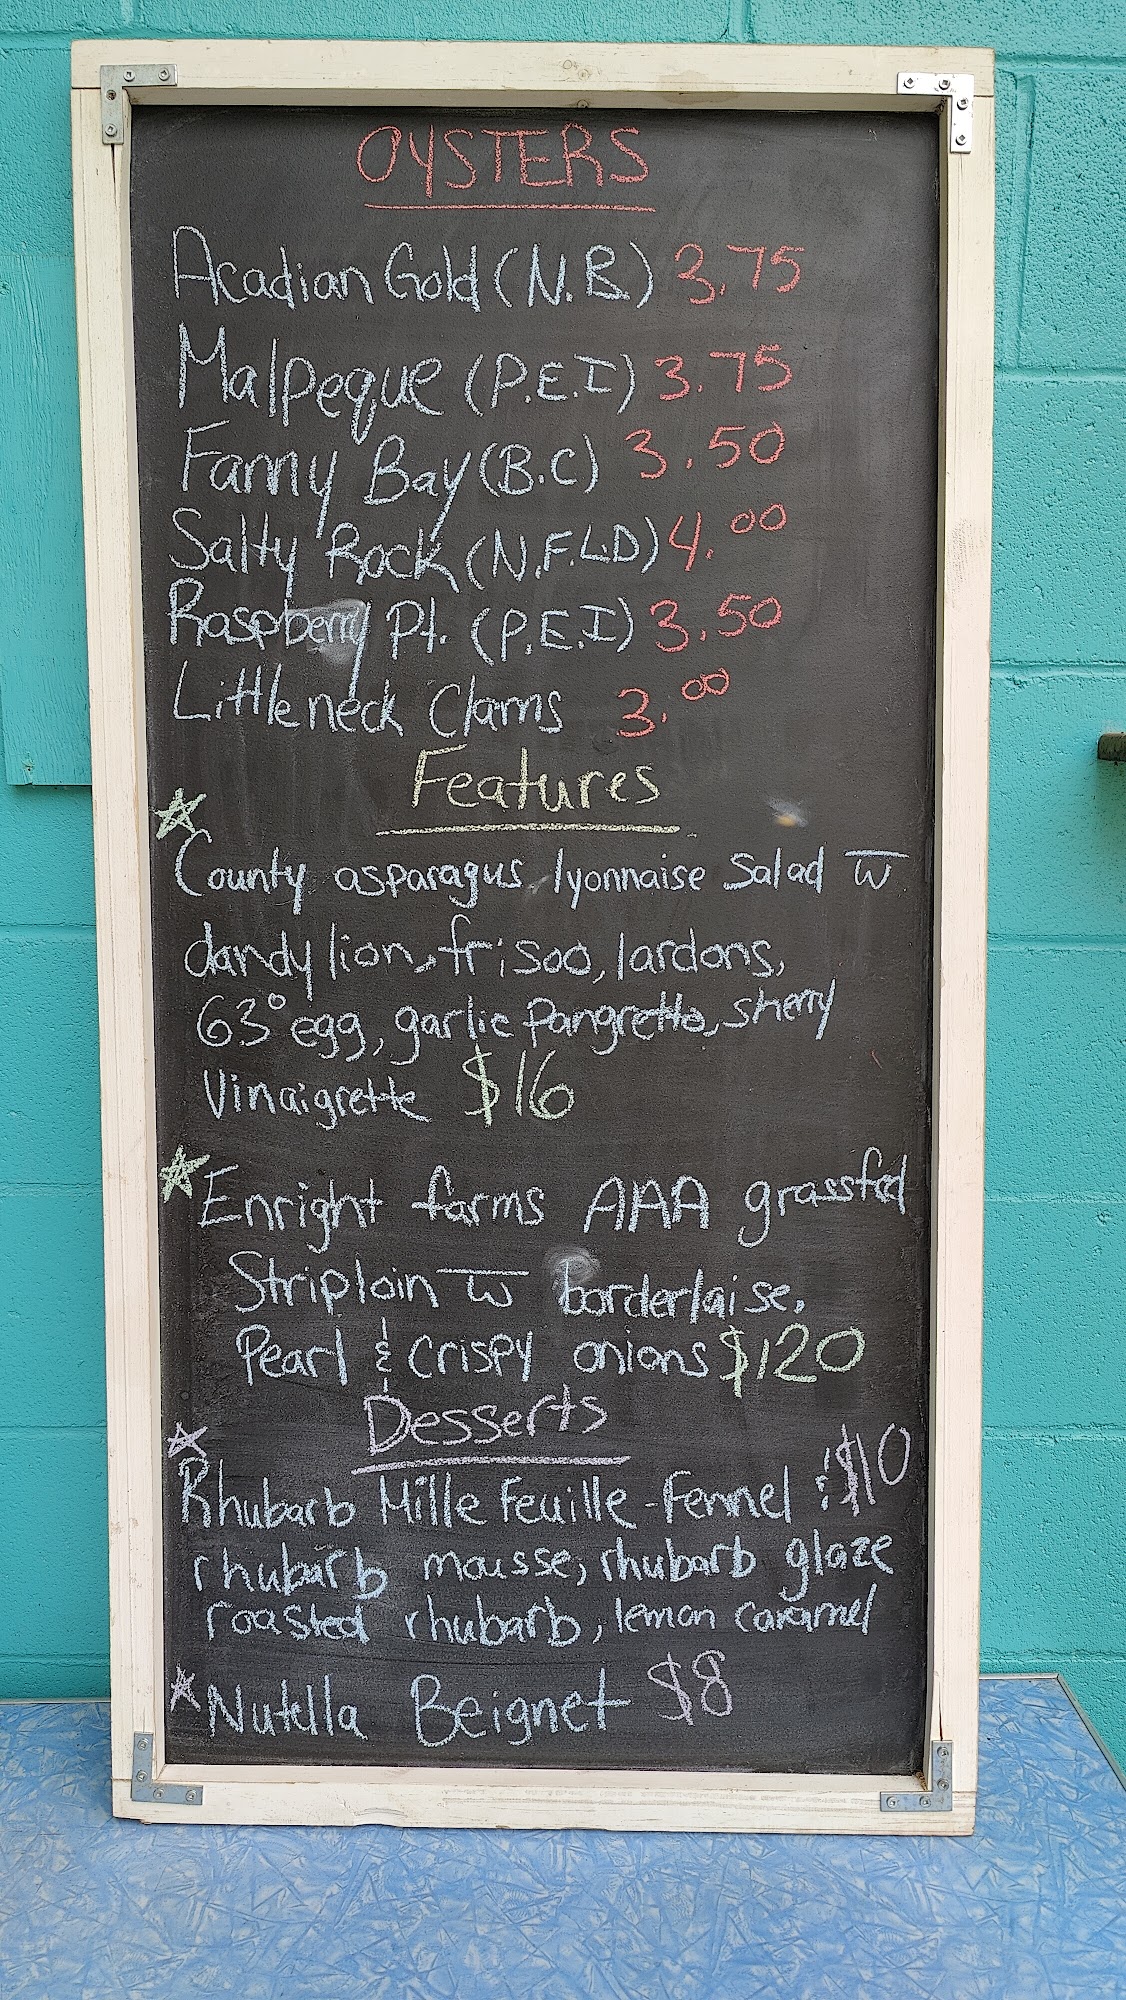 OYSTERS
Acadian Gold (N.B.) 3.75
Malpeque (P.E.I) 3.75
Fanny Bay (B.C) 3.50
Salty Rock (N.F.L.D) 4.00
Raspberry Pt. (P.E.I) 3.50
Littleneck Clams 3.00
Features
County asparagus lyonnaise salad w̅
dandylion, frisoo, lardons,
63° egg, garlic pangretto, sherry
Vinaigrette $16
Enright farms AAA grassfed
Striploin w̅ borderlaise,
Pearl & crispy onions $120
Desserts
Rhubarb Mille Feuille - Fennel & $10
rhubarb mousse, rhubarb glaze
roasted rhubarb, lemon caramel
Nutella Beignet $8